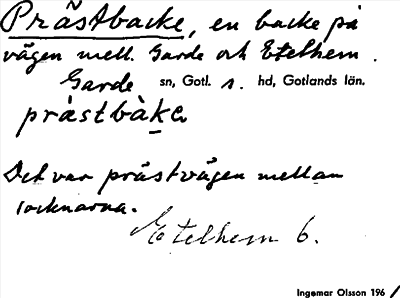 Prästbacke, en backe på
vägen mell. Garde och Etelhem.
Garde sn, Gotl. s. hd, Gotlands län.
prästbàke
Det var prästvägen mellan
socknarna.
Etelhem 6.
Ingemar Olsson 196